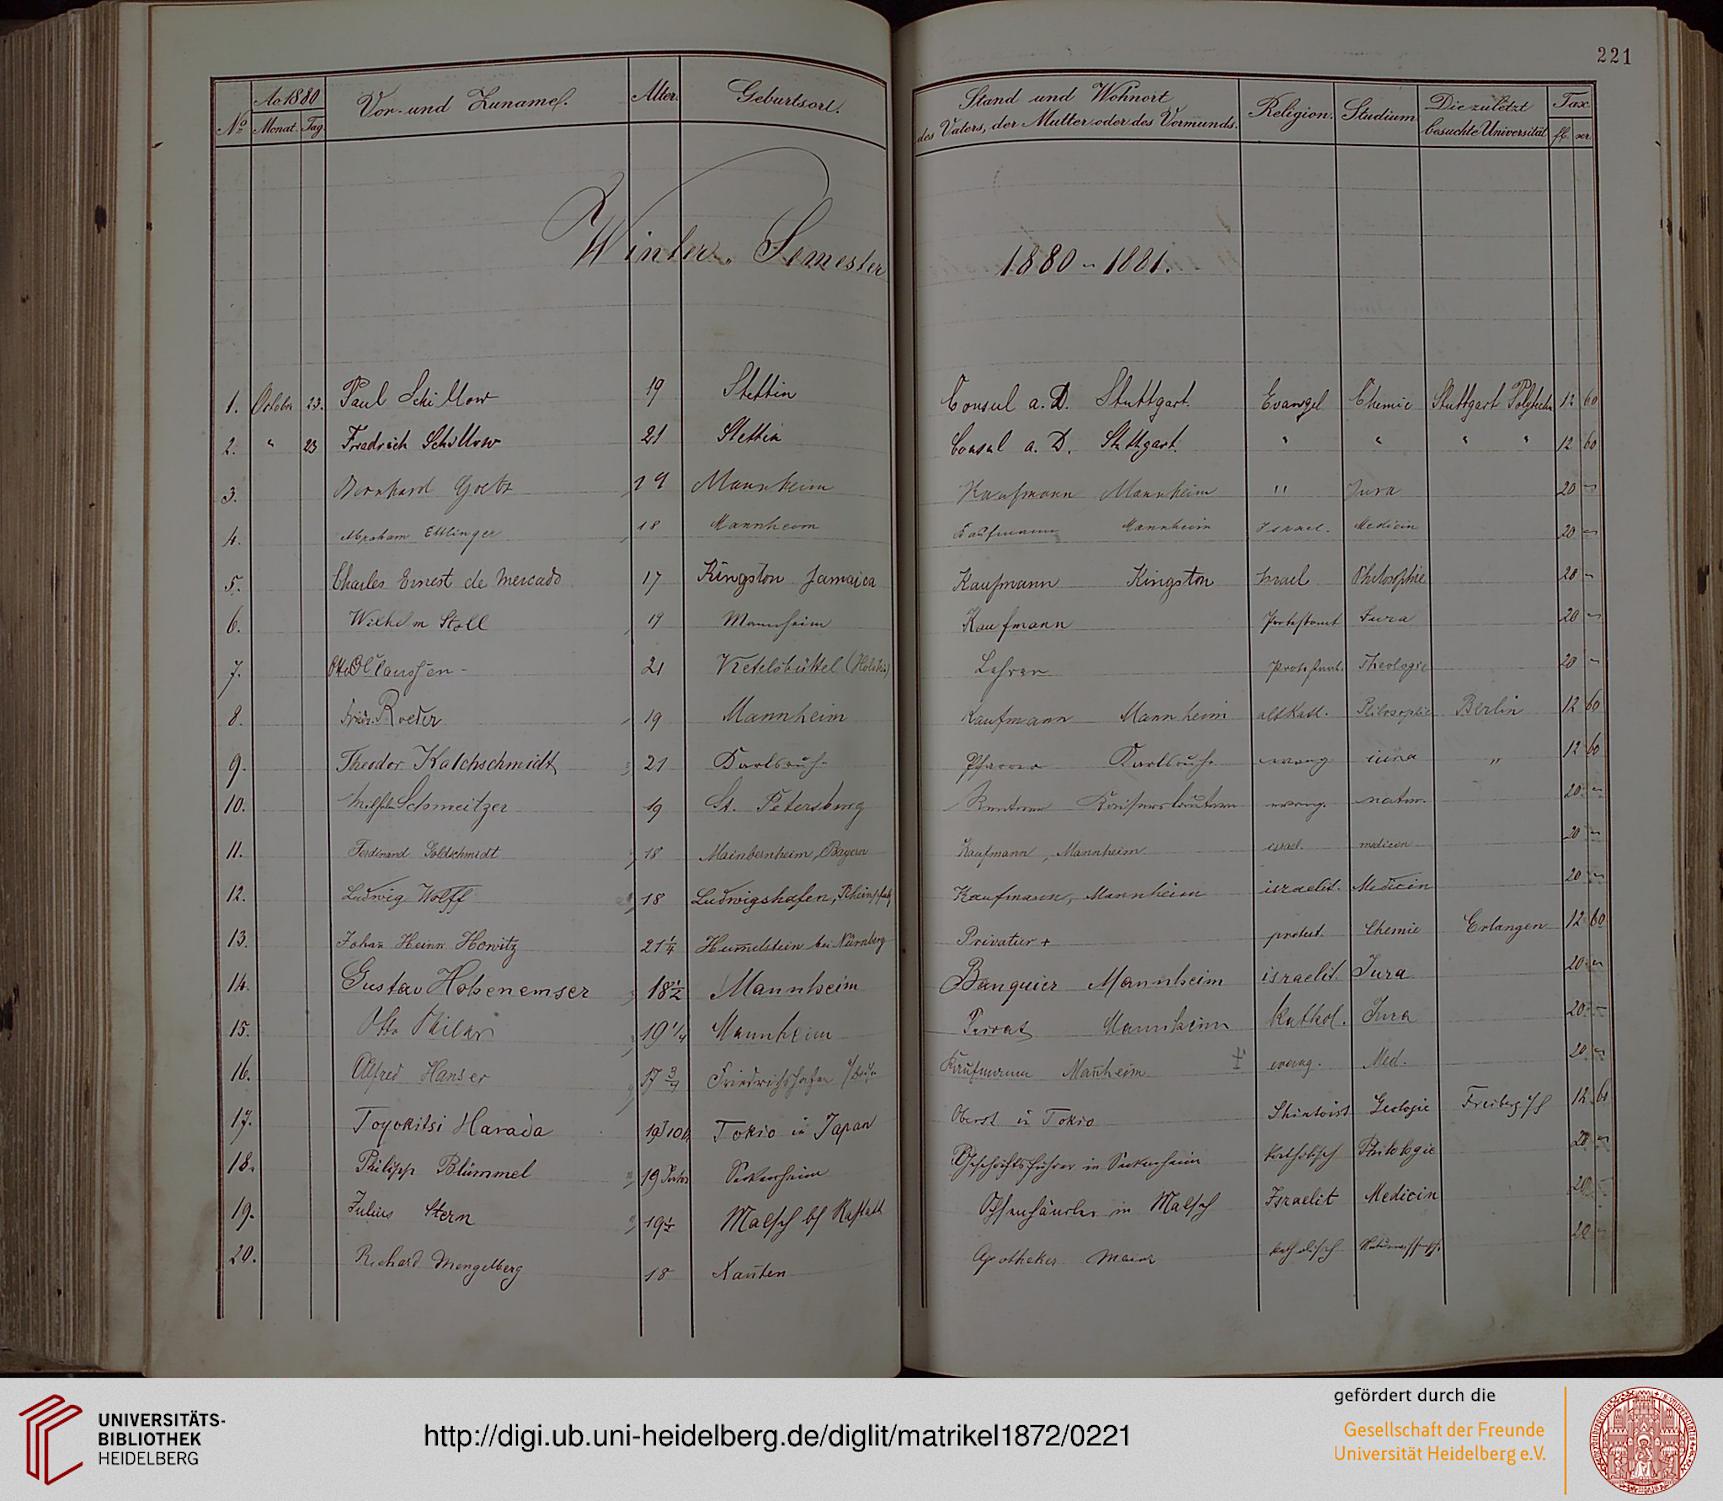 221
No Ao 1880 Monat. Tag. Vor- und Zuname. Alter. Geburtsort. Stand und Wohnort des Vaters, der Mutter oder des Vormunds. Religion. Studium Die zuletzt besuchte Universität Tax. fl. xr.
Winter-Semester 1880-1881.
1. October 23. Paul Schillow 19 Stettin Consul a. D. Stuttgart. Evangel Chemie Stuttgart Polytechn 12 60
2. " 23 Friedrich Schillow 21 Stettin Consul a. D. Stuttgart. " " " " 12 60
3. Bernhard Goetz 19 Mannheim Kaufmann Mannheim " Jura 20 -
4. Abraham Ettlinger 18 Mannheim Kaufmann Mannheim Israel. Medicin 20 -
5. Charles Ernest de Mercado 17 Kingston Jamaica Kaufmann Kingston Israel Philosophie 20 -
6. Wilhelm Stoll 19 Mannheim Kaufmann Protestant Jura 20 -
7. Otto Claussen 21 Ketelsbüttel (Holstein) Lehrer protestant. Theologie 20 -
8. Friedr. Roeder 19 Mannheim Kaufmann Mannheim altkath. Philosophie Berlin 12 60
9. Theodor Kalchschmidt 21 Karlsruhe Pfarrer Karlsruhe evang jura " 12 60
10. Schmeitzer 19 St. Petersburg Rentner Kaiserslautern evang. natur. 20 -
11. Ferdinand Goldschmidt 18 Mainbernheim, Bayern Kaufmann, Mannheim israel. medicin 20 -
12. Ludwig Wolff 18 Ludwigshafen, Rheinpfalz Kaufmann, Mannheim israelit. Medicin 20 -
13. Johan Heinr. Howitz 21 1/4 Hummelstein bei Nürnberg Privatier + protest. Chemie Erlangen 12 60
14. Gustav Hohenemser 18 1/2 Mannheim Banquier Mannheim israelit. Jura 20 -
15. Otto 19 1/4 Mannheim Privat Mannheim Kathol. Jura 20 -
16. Alfred Hanser 17 3/4 Friedrichshafen Kaufmann Mannheim evang. Med. 20 -
17. Toyokitsi Harada 19 J 10 M Tokio in Japan Oberst in Tokio Shintoist Geologie Freiberg i/S 12 60
18. Philipp Blümmel 19 Jahr Seckenheim Geschäftsführer in Seckenheim katholisch Philologie 20 -
19. Julius Stern 19 1/2 Malsch bei Rastatt Israelit Medicin 20 -
20. Richard Mengelberg 18 Xanten Apotheker Mainz katholisch Naturwissensch. 20 -
UNIVERSITÄTS-
BIBLIOTHEK
HEIDELBERG
http://digi.ub.uni-heidelberg.de/diglit/matrikel1872/0221
gefördert durch die
Gesellschaft der Freunde
Universität Heidelberg e.V.